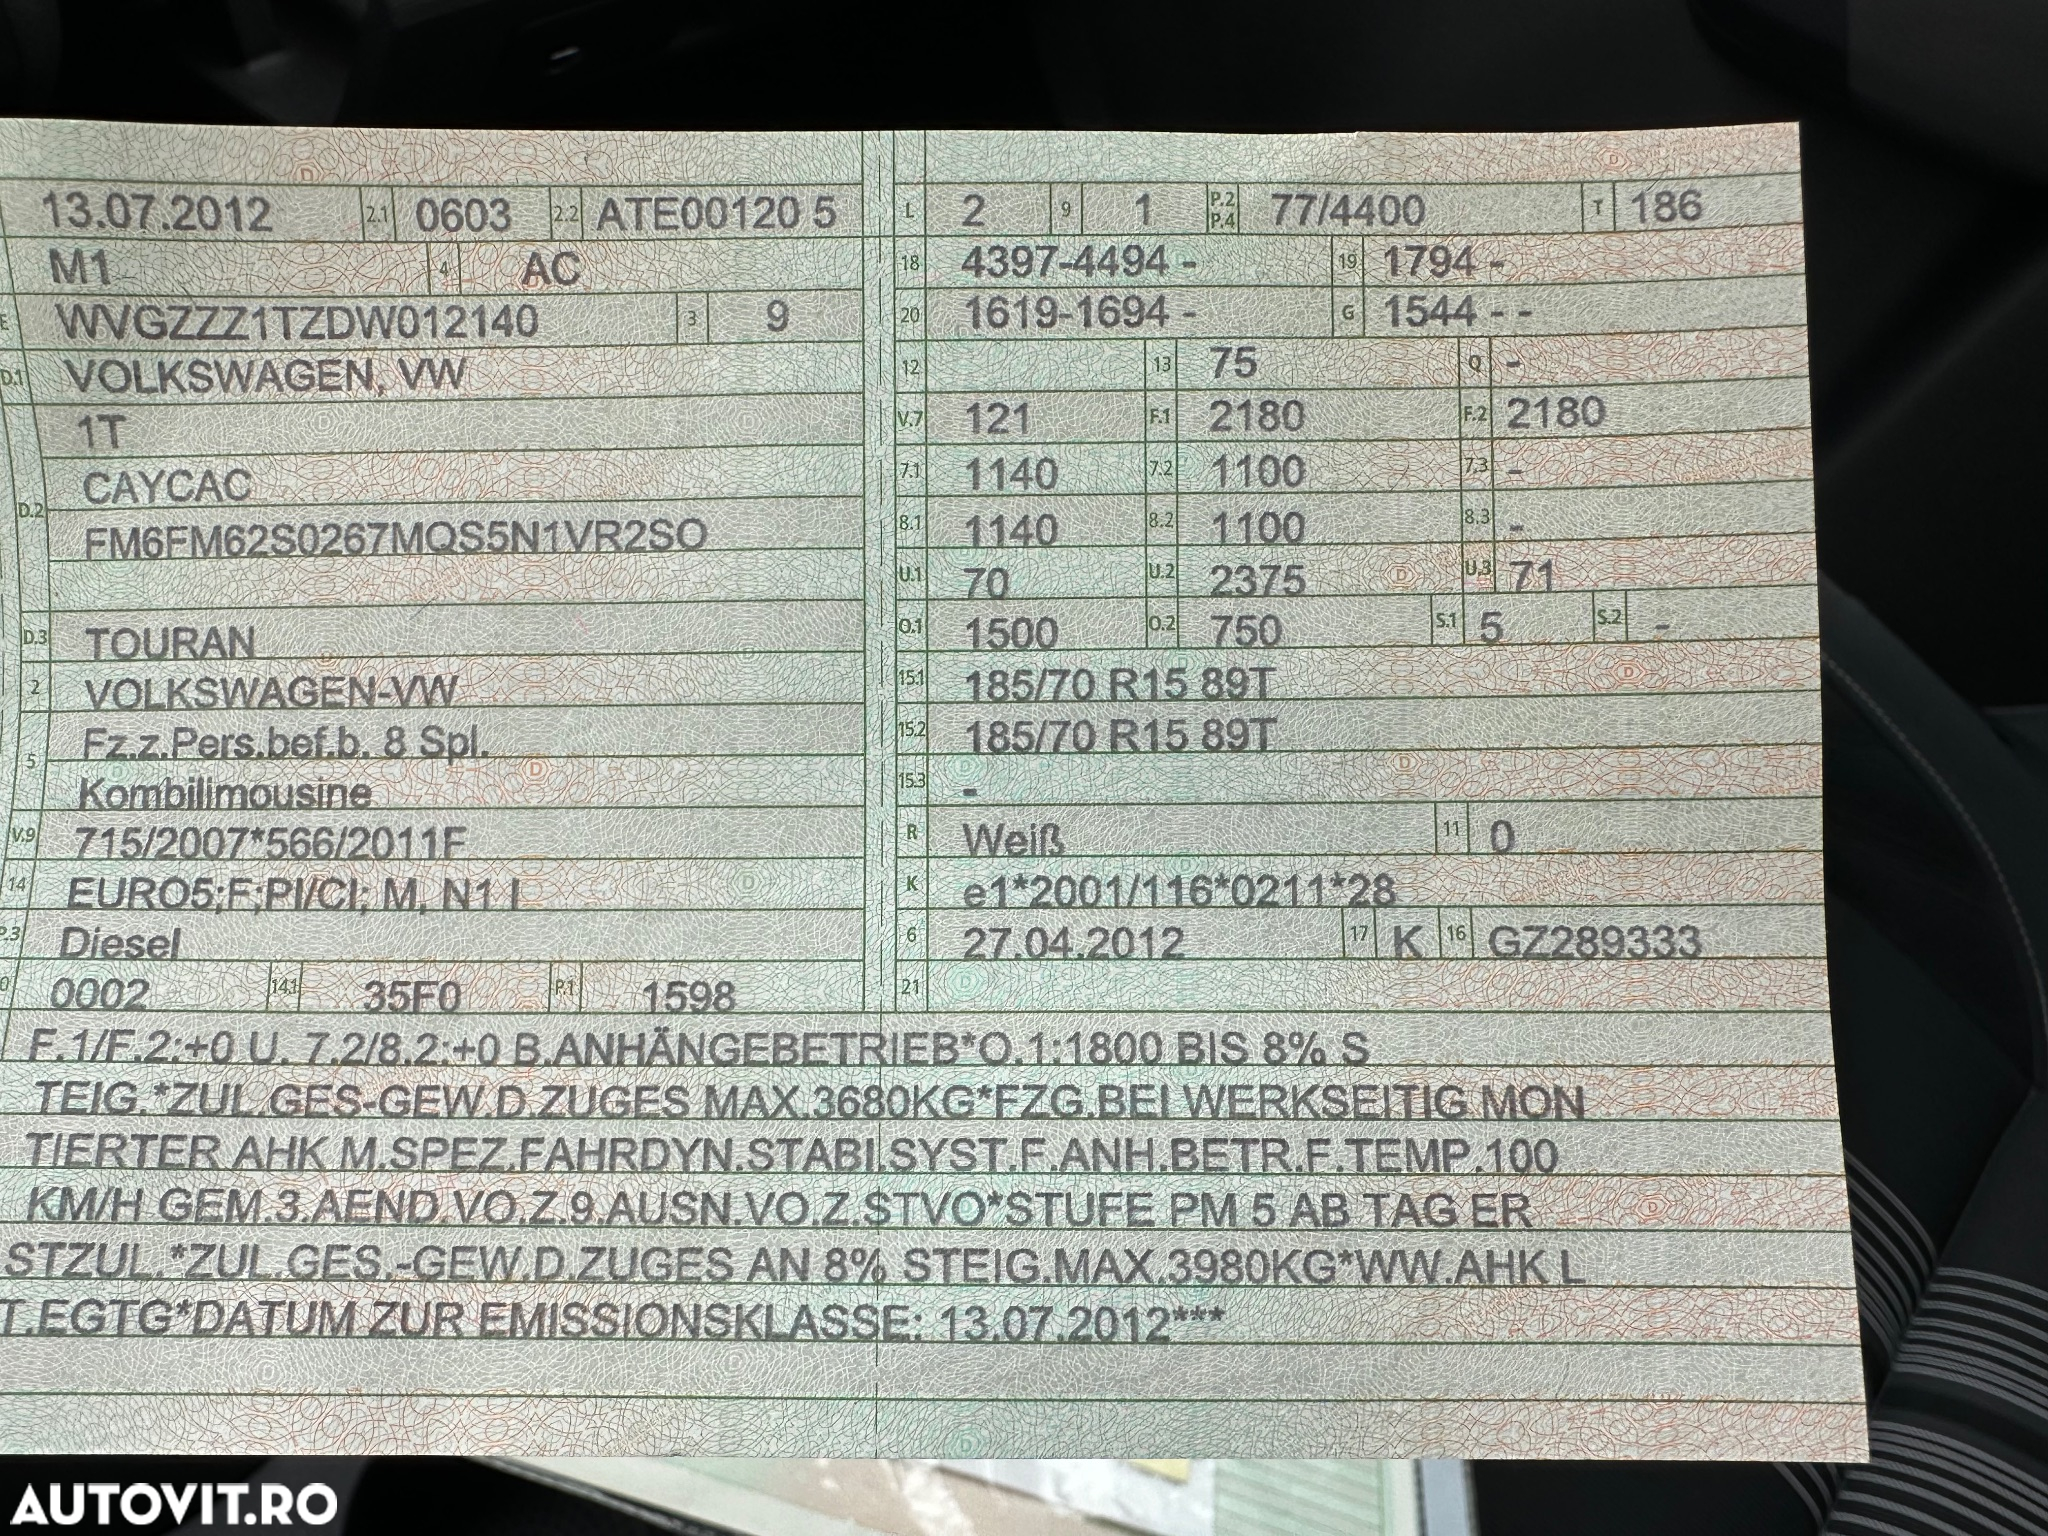 13.07.2012 2.1 0603 2.2 ATE00120 5
M1 4 AC
E WVGZZZ1TZDW012140 3 9
D.1 VOLKSWAGEN, VW
1T
D.2 CAYCAC
FM6FM62S0267MQS5N1VR2SO
D.3 TOURAN
2 VOLKSWAGEN-VW
5 Fz.z.Pers.bef.b. 8 Spl.
Kombilimousine
V.9 715/2007*566/2011F
14 EURO5;F;PI/CI; M, N1 I
P.3 Diesel
0 0002 14.1 35F0 P.1 1598
L 2 9 1 P.2 P.4 77/4400 T 186
18 4397-4494 - 19 1794 -
20 1619-1694 - G 1544 - -
12 13 75 Q -
V.7 121 F.1 2180 F.2 2180
7.1 1140 7.2 1100 7.3 -
8.1 1140 8.2 1100 8.3 -
U.1 70 U.2 2375 U.3 71
O.1 1500 O.2 750 S.1 5 S.2 -
15.1 185/70 R15 89T
15.2 185/70 R15 89T
15.3 -
R Weiß 11 0
K e1*2001/116*0211*28
6 27.04.2012 17 K 16 GZ289333
21
F.1/F.2:+0 U. 7.2/8.2:+0 B.ANHÄNGEBETRIEB*O.1:1800 BIS 8% S
TEIG.*ZUL.GES-GEW.D.ZUGES MAX.3680KG*FZG.BEI WERKSEITIG MON
TIERTER AHK M.SPEZ.FAHRDYN.STABI.SYST.F.ANH.BETR.F.TEMP.100
KM/H GEM.3.AEND.VO.Z.9.AUSN.VO.Z.STVO*STUFE PM 5 AB TAG ER
STZUL. *ZUL.GES.-GEW.D.ZUGES AN 8% STEIG.MAX.3980KG*WW.AHK L
T.EGTG*DATUM ZUR EMISSIONSKLASSE: 13.07.2012***
AUTOVIT.RO